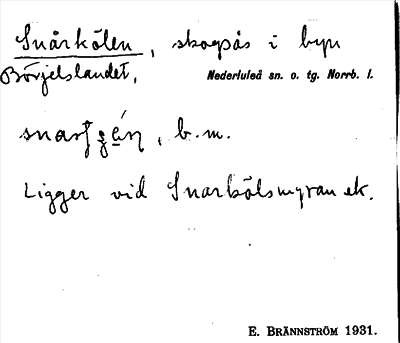 Snårkölen, skogsås i byn
Börjelslandet, Nederluleå sn. o. tg. Norrb. l.
, b. m.
Ligger vid Snarkölsmyran ek.
E. BRÄNNSTRÖM 1931.